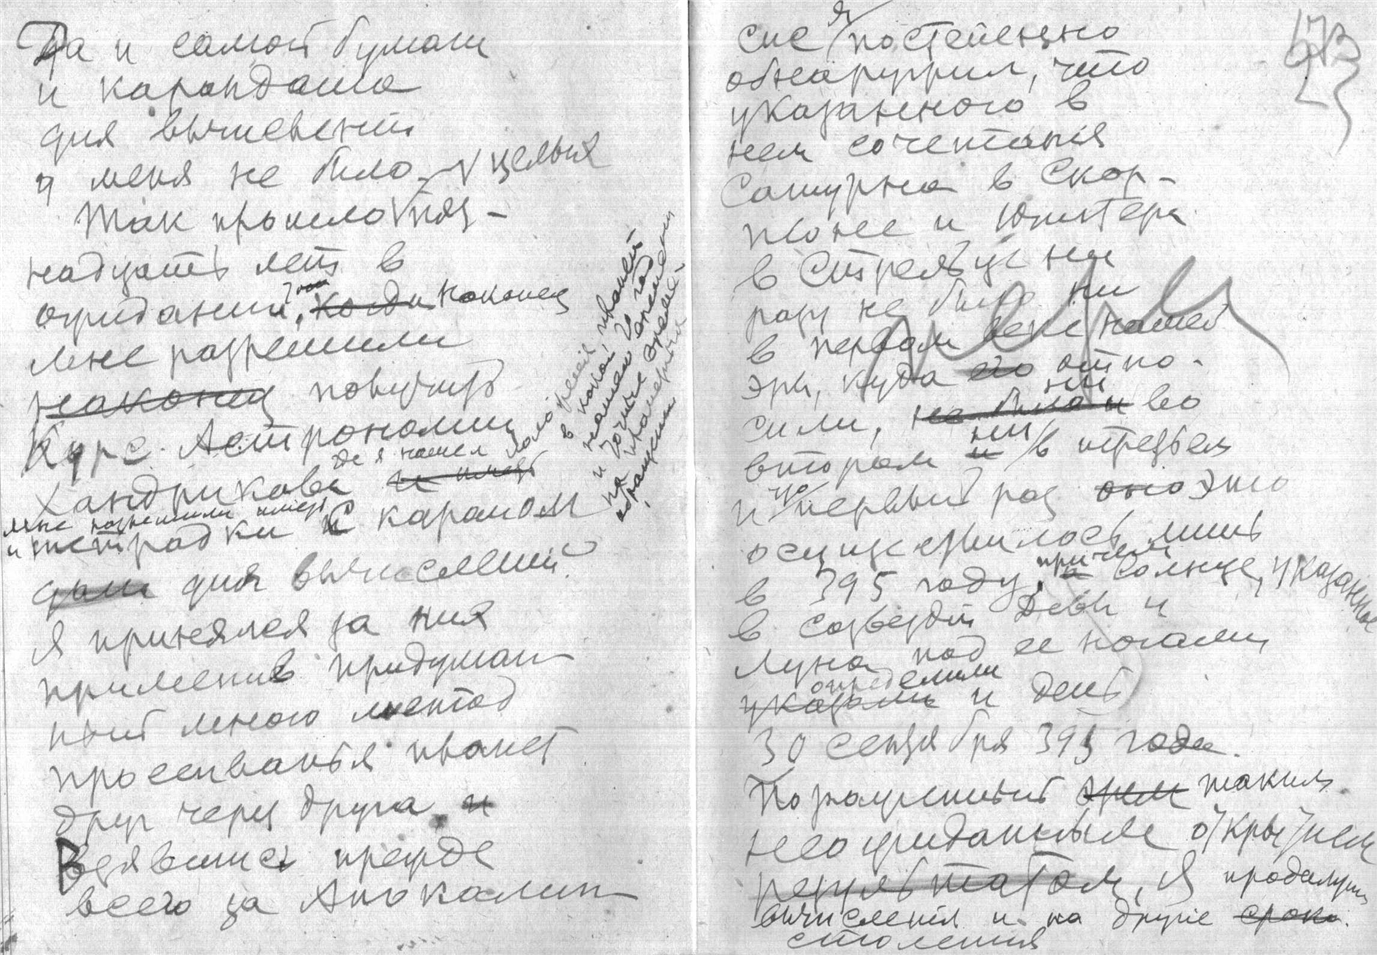 Да и самой бумаги
и карандаша
для вычислений
у меня не было.
Так прошло целых пят-
надцать лет в
ожидании, что когда наконец
мне разрешили
наконец получить
Курс Астрономии
Хандрикова
где я нашел и иметь
мне разрешили иметь
и тетрадки с карандашом
дали для вычислений.
Я принялся за них
применив придуман
ный мною метод
просеиванья планет
друг через друга и
Взявшись прежде
всего за Апокалип
планет
в каком году
нашего времени
и точные время
обращения
173
сисе я постепенно
обнаружил, что
указанного в
нем сочетания
Сатурна в Скор-
пионе и Юпитера
в Стрельце ни
разу не было ни
в первом веке нашей
эры, куда его отно-
сили, не было и ни во
втором и ни в третьем
и что первый раз оно это
осуществилось лишь
в 395 году, причем и солнце, указанное
в созвездии Девы и
Луна под ее ногами
определили
указали и день
30 сентября 395 года.
Пораженный этим таким
неожиданным открытием
результатом, я продолжил
вычисления и на другие сроки.
столетия